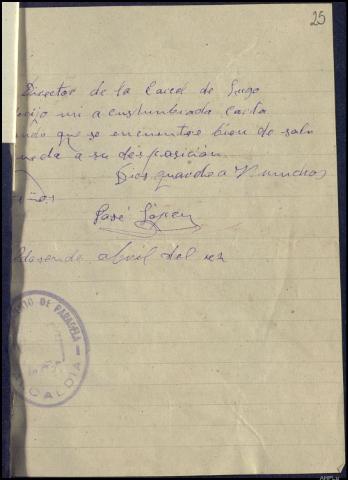 25
Director de la Carcel de Lugo
rijo mi acustunbrada carta
ando que se encuentre bien de salu
ueda a su desposición
Dios guarde a V muchos
años
José López
abril del
TO DE PARADELA
ALCALDIA